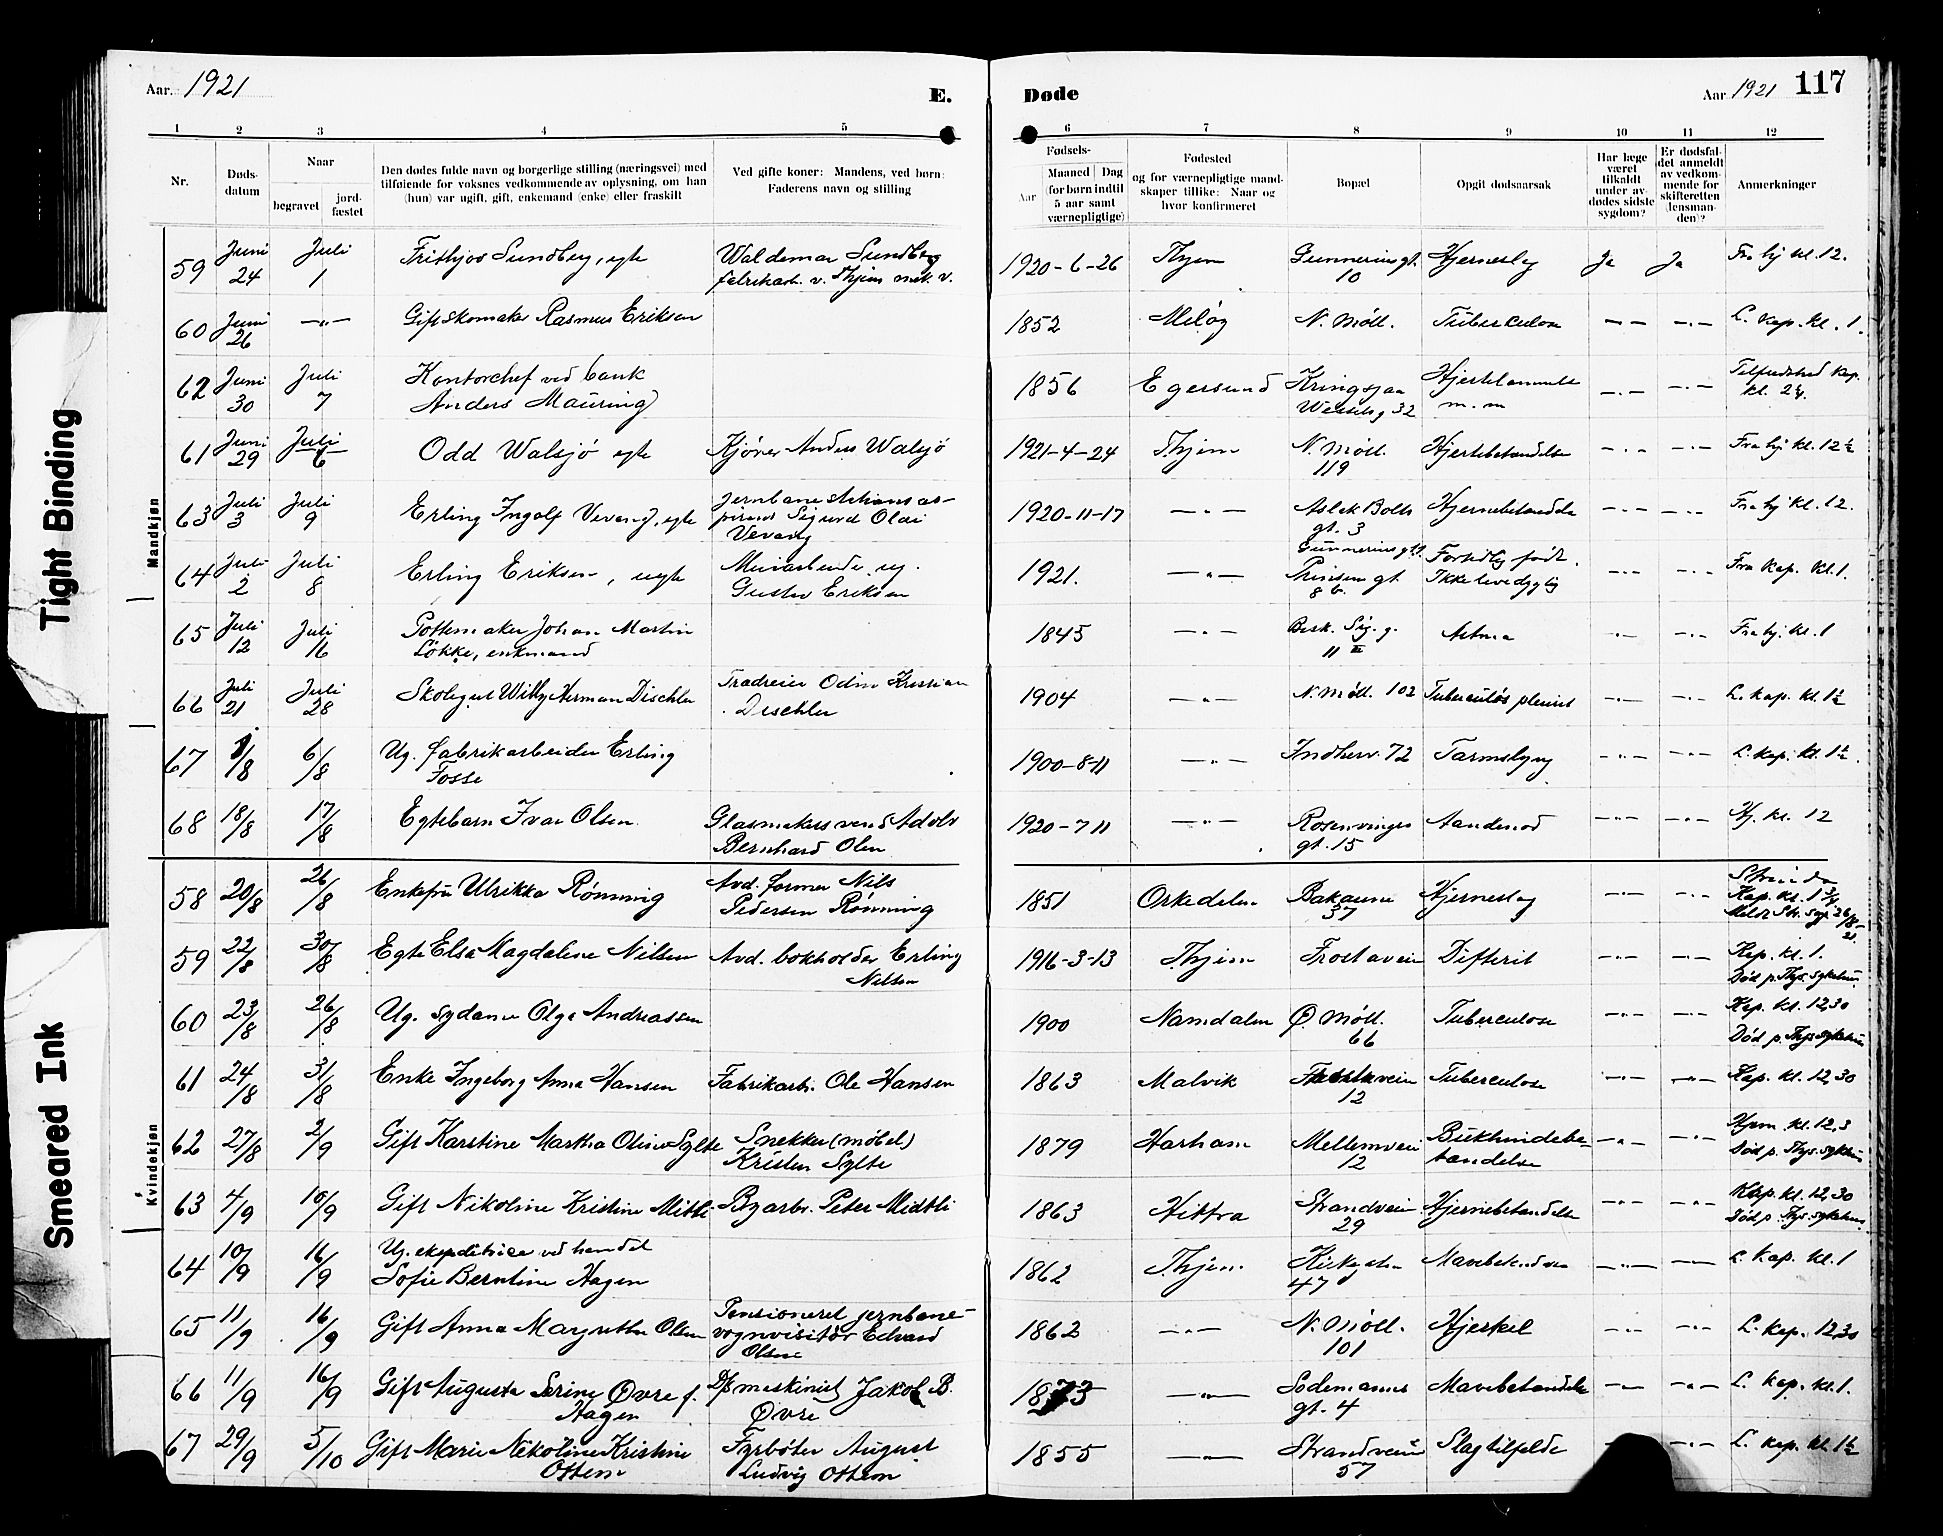 Tight Binding
Smeared Ink
Aar. 1921
E.
Døde
Aar 1921 117
1 2 3 4 5 6 7 8 9 10 11 12
Nr.
Døds-
datum
Naar
begravet
jord-
fæstet
Den dødes fulde navn og borgerlige stilling (næringsvei) med
tilføiende for voksnes vedkommende av oplysning, om han
(hun) var ugift, gift, enkemand (enke) eller fraskilt
Ved gifte koner: Mandens, ved børn:
Faderens navn og stilling
Fødsels-
Aar
Maaned Dag
(for børn indtil
5 aar samt
værnepligtige)
Fødested
og for værnepligtige mand-
skaper tillike: Naar og
hvor konfirmeret
Bopæl
Opgit dødsaarsak
Har læge
været
tilkaldt
under av-
dødes sidste
sygdom?
Er dødsfal-
det anmeldt
av vedkom-
mende for
skifteretten
(lensman-
den)?
Anmerkninger
Mandkjøn
59 Juni 24 Juli 1 Sundberg, egte Waldemar Sundberg 1920-6-26 Thjem Gunnerus gt. 10 Hjerneslag Ja Ja Fra hj. kl. 12.
60 Juni 26 —"— Gift skomaker Rasmus Eriksen 1852 N. Møll. Tuberkulose —"— —"— L. kap. kl. 1.
62 Juni 30 Juli 7 Kontorchef ved bank
Anders Mauring 1856 Egersund Kringsjaa 32 m.m —"— —"— kap. kl.
61 Juni 29 Juli 6 Odd Walsjö egte Anders Walsjö 1921-4-24 Thjem N. Møll. 119 Hjertebetændelse —"— —"— Fra hj. kl. 12½
63 Juli 3 Juli 9 Erling Ingolf Vevang, egte Jernbane
Sigurd Olai
Vevang 1920-11-17 —"— Aslak Bolts gt. 3 Hjernebetændelse —"— —"— Fra hj. kl. 12.
64 Juli 2 Juli 8 Erling Eriksen, uegte
Gustav Eriksen 1921. —"— Prinsens gt. 8 b. født.
Ikke levedygtig —"— —"— Fra kap. kl. 1.
65 Juli 12 Juli 16 Pottemaker Johan Martin
Løkke, enkemand 1845 —"— 11 Astma —"— —"— Fra hj. kl. 1
66 Juli 21 Juli 28 Skolegut Willy Herman Dischler Odin Kristian
Dischler 1904 —"— N. Møll. 102 Tuberculøs pleurit —"— —"— L. kap. kl. 1½
67 1/8 6/8 Ug. fabrikarbeider Erling
Fosse 1900-8-11 —"— Indherv. 72 Tarmslyng —"— —"— L. kap. kl. 1½
68 18/8 17/8 Egtebarn Ivar Olsen Glasmakersvend Adolv
Bernhard Olsen 1920-7 11 —"— Rosenvinges gt. 15 Aandenød —"— —"— Hj. kl. 12
Kvindekjøn
58 20/8 26/8 Enkefru Ulrikka Rønning Avd. former Nils
Pedersen Rønning 1851 Orkedalen Bakaune 37 Hjerneslag —"— —"— Strinda
Kap. kl. 1
59 22/8 30/8 Egte Elsa Magdalene Nilsen Avd. bokholder Erling
Nilsen 1916-3-13 Thjem Frostaveien Difterit —"— —"— Kap. kl. 1.
Død p. Thjs. sykehus
60 23/8 26/8 Ug. sydame Olga Andreassen 1900 Namdalen Ø. Møll. 66 Tuberculose —"— —"— Kap. kl. 12,30
Død p. Thjs. sykehus
61 24/8 31/8 Enke Ingeborg Anna Hansen Fabrikarb. Ole Hansen 1863 Malvik 12 Tuberculose —"— —"— Kap. kl. 12,30
62 27/8 2/9 Gift Karstine Martha Oline Sylte Snekker (møbel)
Kristen Sylte 1879 Harham Mellemveien 12 Bukhindebe-
tændelse —"— —"— Hjem kl. 12,3
Død p. Thjs. sykehus
63 4/9 10/9 Gift Nikoline Kristine Mitli Byarb. Peter Midtli 1863 Hittra Strandveien 29 Hjernebetændelse —"— —"— Kap. kl. 12,30
Død p. Thjs. sykehus
64 10/9 16/9 Ug. ekspeditrice ved handel
Sofie Berntine Hagen 1862 Thjem Kirkegaten 47 Mavebetændelse —"— —"— L. kap. kl. 1
65 11/9 16/9 Gift Anna Margrethe Olsen Pensioneret jernbane-
vognvisitør Edvard
Olsen 1862 —"— N. Møll. 101 Hjertel —"— —"— L. kap. 12,30
66 11/9 16/9 Gift Augusta Serine Øvre f.
Hagen D/s maskinist Jakob B.
Øvre 1873 —"— Sodemanns gt. 4 Mavebetændelse —"— —"— L. kap. kl. 1.
67 29/9 5/10 Gift Marie Nekoline Kristine
Ottem Fyrbøter August
Ludvig Ottem 1855 —"— Strandveien 57 Slagtilfelde —"— —"— L. kap. kl. 1½